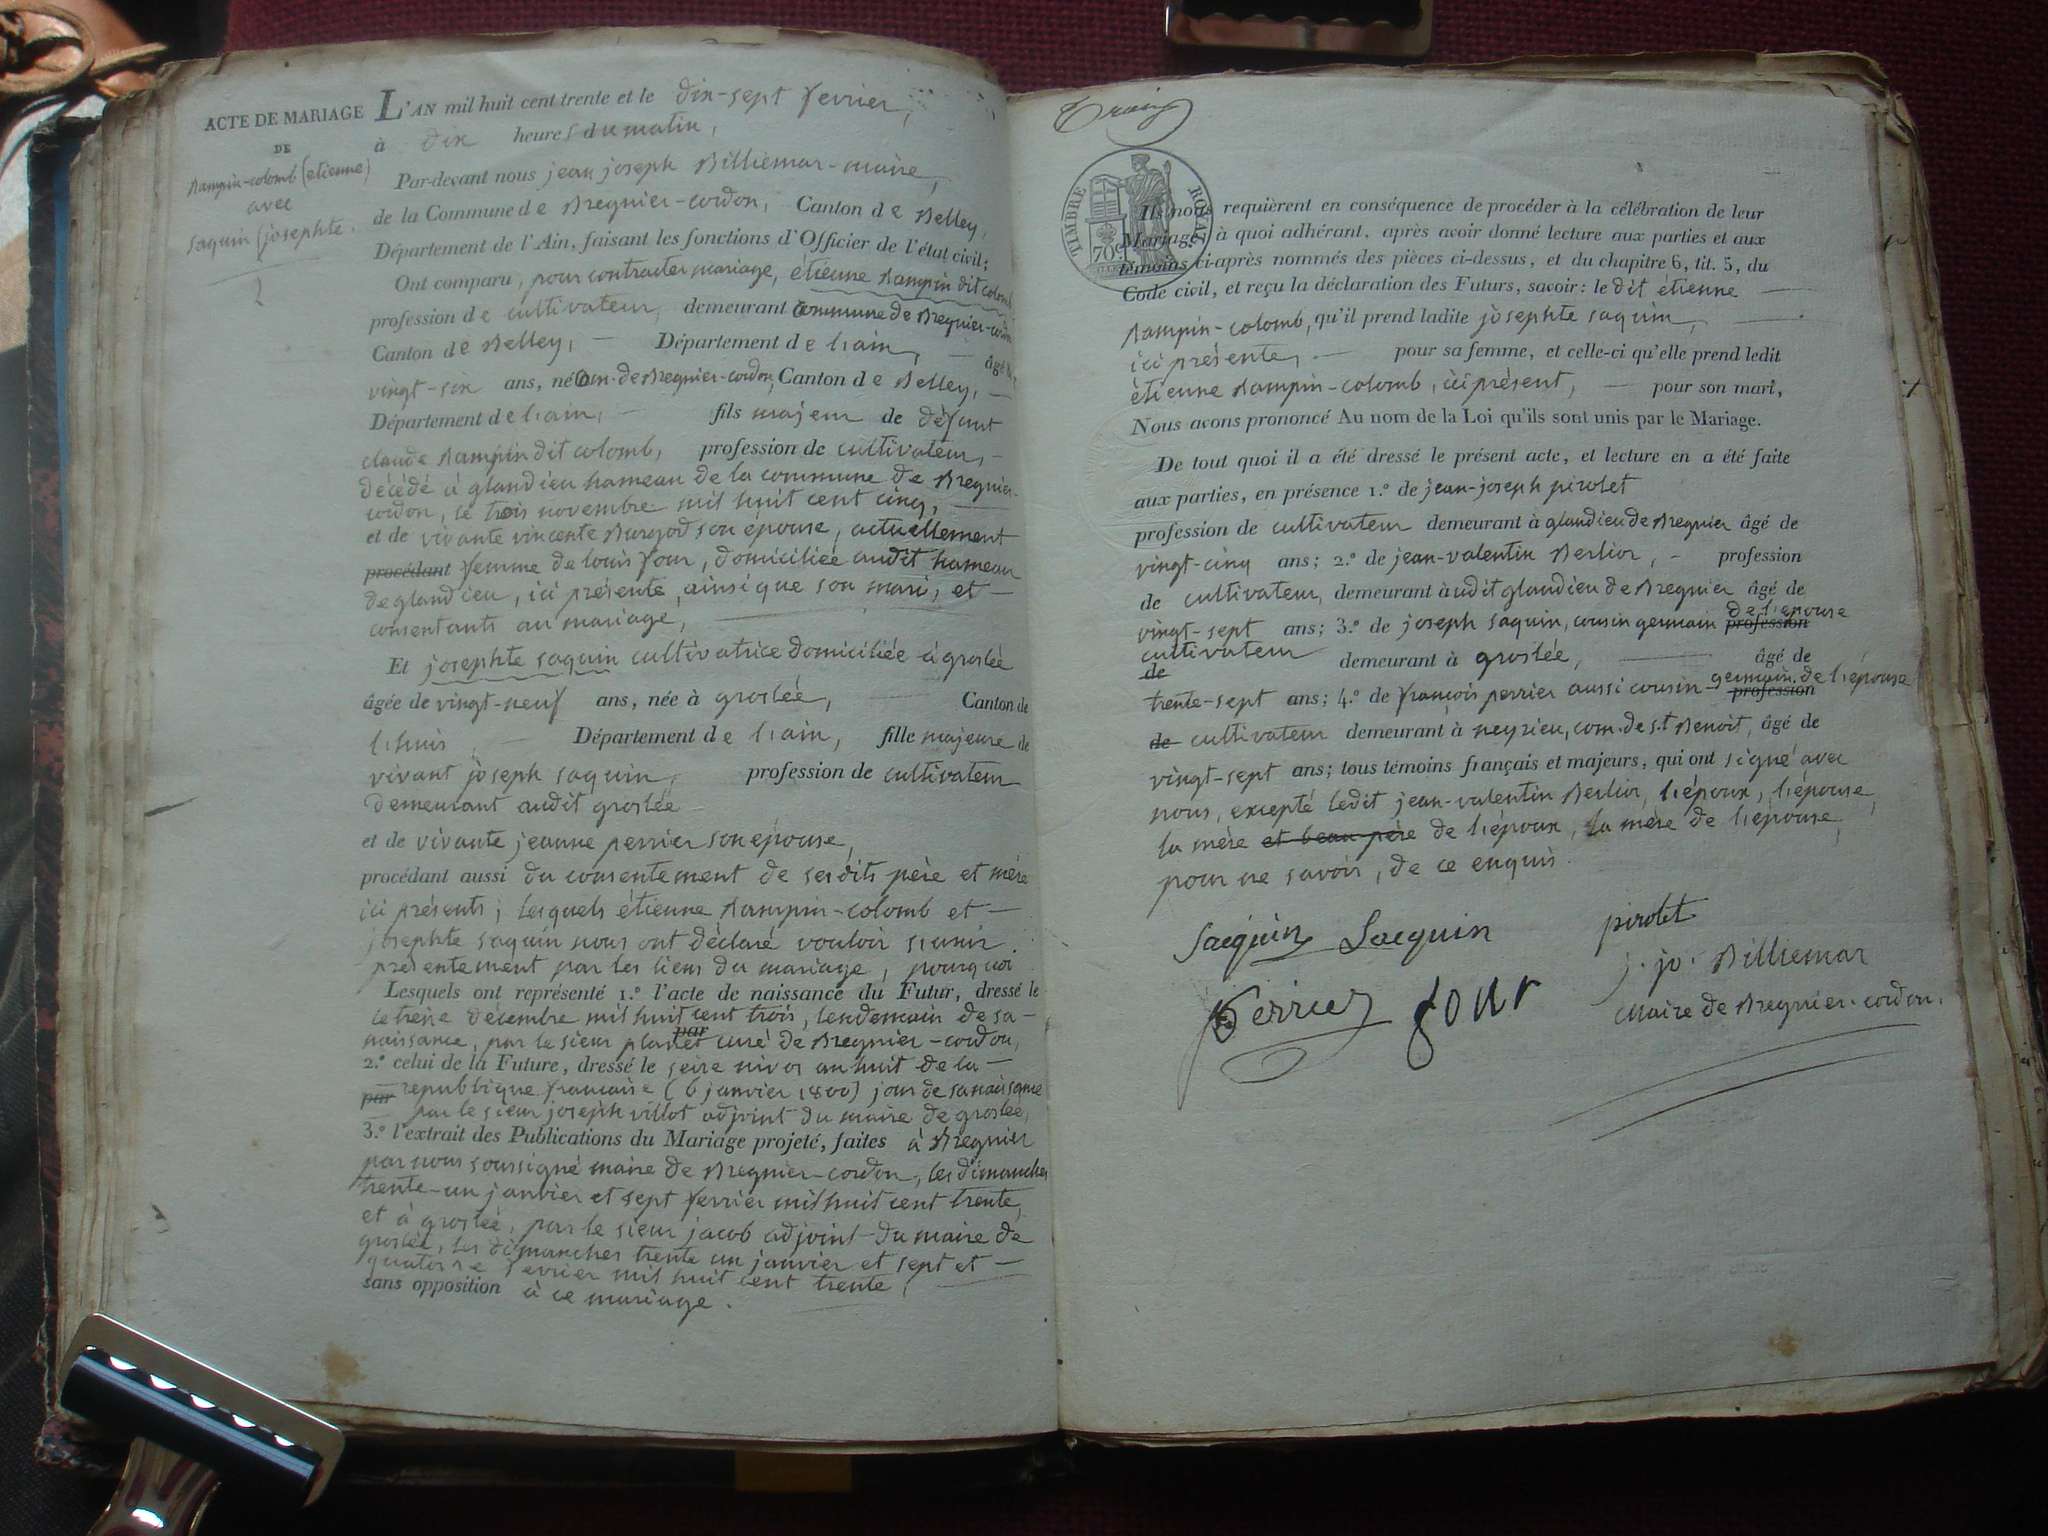 ACTE DE MARIAGE
DE
Rampin-colomb (etienne)
avec
saquin (josephte.
L'AN mil huit cent trente et le dix-sept fevrier,
à dix heures du matin,
Par-devant nous jean joseph Billiemar-maire,
de la Commune de Bregnier-cordon, Canton de Belley,
Département de l'Ain, faisant les fonctions d'Officier de l'état civil;
Ont comparu, pour contracter mariage, étienne Rampin dit colomb
profession de cultivateur, demeurant commune de Bregnier-cordon
Canton de Belley, Département de l'ain, âgé de
vingt-six ans, né com. de Bregnier-cordon, Canton de Belley,
Département de l'ain, fils majeur de défunt
claude Rampin dit colomb, profession de cultivateur,
décédé à glandieu hameau de la commune de Bregnier-
cordon, le trois novembre mil huit cent cinq,
et de vivante vincente Burgod son épouse, actuellement
procédant femme de louis four, domiciliée audit hameau
de glandieu, ici présente, ainsi que son mari, et
consentants au mariage,
Et josephte saquin cultivatrice domiciliée à groslée
âgée de vingt-neuf ans, née à groslée, Canton de
l'huis, Département de l'ain, fille majeure de
vivant joseph saquin, profession de cultivateur
demeurant audit groslée
et de vivante jeanne perrier son épouse,
procédant aussi du consentement de sesdits père et mère
ici présents; lesquels étienne Rampin-colomb et
josephte saquin nous ont déclaré vouloir s'unir
présentement par les liens du mariage, pourquoi
Lesquels ont représenté 1.º l'acte de naissance du Futur, dressé le
le treize décembre mil huit cent trois, lendemain de sa
naissance, par le sieur planet curé de Bregnier-cordon,
par
2.º celui de la Future, dressé le seize nivos an huit de la
par republique francaise (6 janvier 1800) jour de sa naissance
par le sieur joseph villot adjoint du maire de groslée,
3.º l'extrait des Publications du Mariage projeté, faites à Bregnier
par nous soussigné maire de Bregnier-cordon, les dimanches
trente-un janvier et sept fevrier mil huit cent trente,
et à groslée, par le sieur jacob adjoint du maire de
groslée, les dimanches trente un janvier et sept et
quatorze fevrier mil huit cent trente,
sans opposition à ce mariage.
TIMBRE ROYAL
70 c
Ils nous requièrent en conséquence de procéder à la célébration de leur
Mariage, à quoi adhérant, après avoir donné lecture aux parties et aux
témoins ci-après nommés des pièces ci-dessus, et du chapitre 6, tit. 5, du
Code civil, et reçu la déclaration des Futurs, savoir: le dit etienne
Rampin-colomb, qu'il prend ladite josephte saquin,
ici présente, pour sa femme, et celle-ci qu'elle prend ledit
étienne Rampin-colomb, ici présent, pour son mari,
Nous avons prononcé Au nom de la Loi qu'ils sont unis par le Mariage.
De tout quoi il a été dressé le présent acte, et lecture en a été faite
aux parties, en présence 1.º de jean-joseph pirolet
profession de cultivateur demeurant à glandieu de Bregnier âgé de
vingt-cinq ans; 2.º de jean-valentin Berlior, profession
de cultivateur, demeurant audit glandieu de Bregnier âgé de
vingt-sept ans; 3.º de joseph saquin, cousin germain de l'epouse profession
cultivateur
de demeurant à groslée, âgé de
trente-sept ans; 4.º de françois perrier aussi cousin-germain de l'épouse profession
de cultivateur demeurant à neyrieu, com. de s.t Benoit, âgé de
vingt-sept ans; tous témoins français et majeurs, qui ont signé avec
nous, excepté ledit jean-valentin Berlior, l'époux, l'épouse,
la mère et beau père de l'époux, la mère de l'épouse,
pour ne savoir, de ce enquis.
Sacquin Sacquin pirolet
j. jo. Billiemar
Perrier four
Maire de Bregnier-cordon.